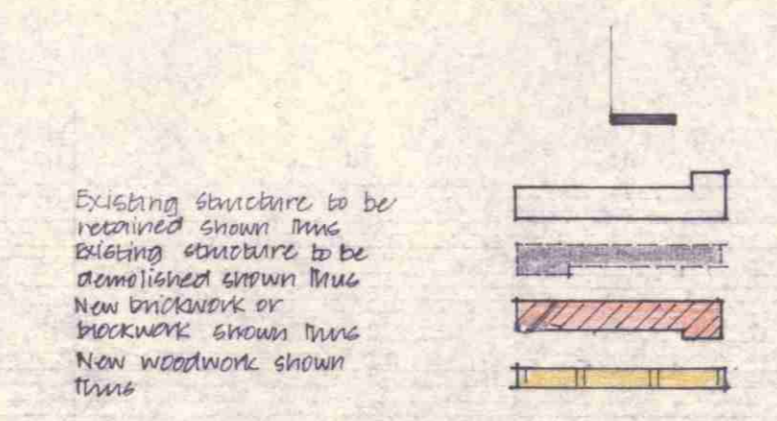 Existing structure to be
retained shown thus
Existing structure to be
demolished shown thus
New brickwork or
blockwork shown thus
New woodwork shown
thus